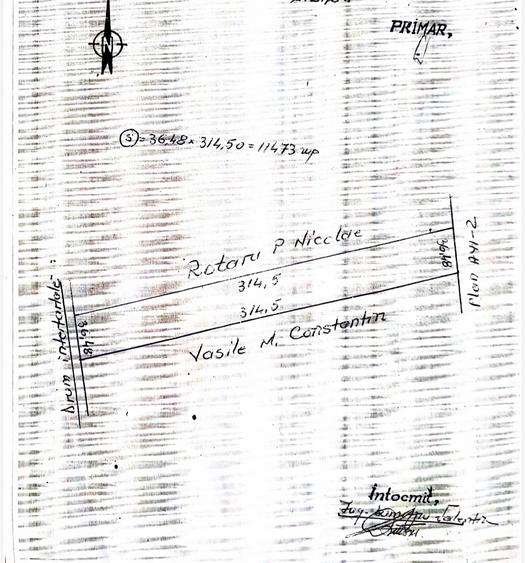 N
PRIMAR,
S = 36.48 x 314,50 = 11473 mp
Rotaru P Nicolae
314,5
36,48
314,5
Vasile M. Constantin
Drum intertarlale
36,48
Plan A41-2
Intocmit,
Ing.